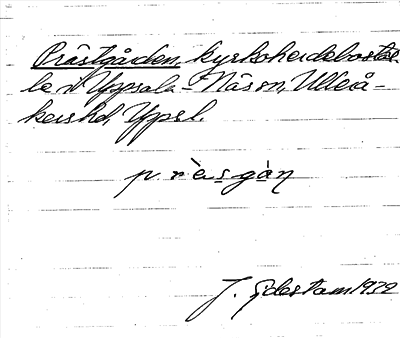 Prästgården, kyrkoherdebostäl-
le i Uppsala-Näs sn, Ullerå-
kers hd, Uppl.
prèsgàn
J. Gidestam 1932